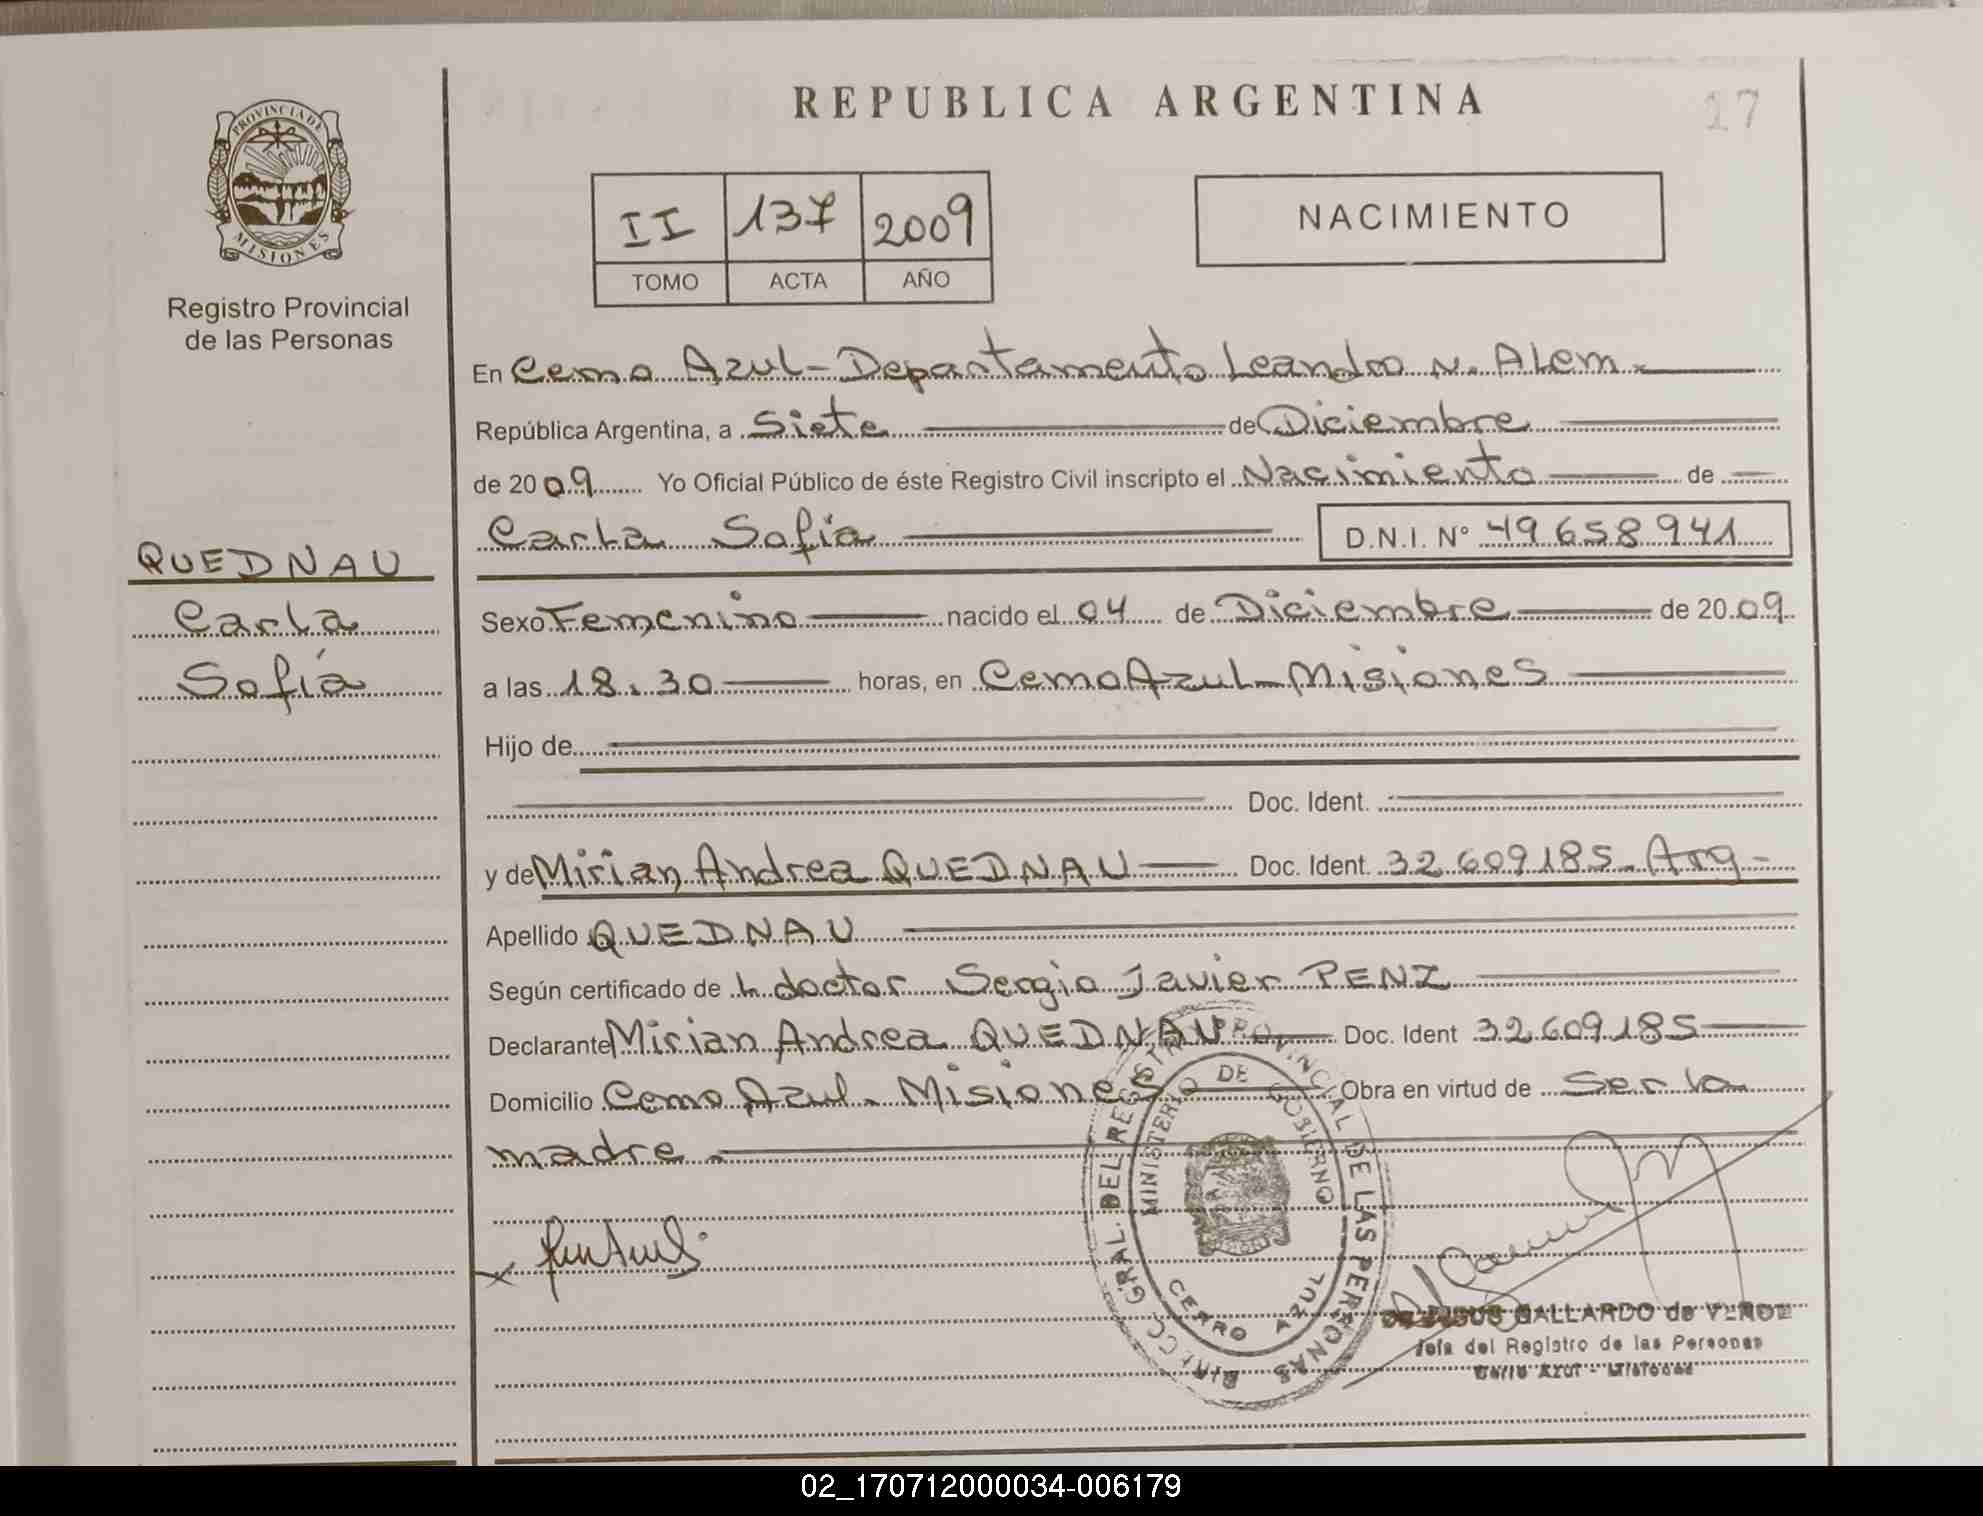 REPUBLICA ARGENTINA
17
PROVINCIA DE
MISIONES
Registro Provincial
de las Personas
II 137 2009
TOMO ACTA AÑO
NACIMIENTO
En Cerro Azul - Departamento Leandro N. Alem.
República Argentina, a Siete de Diciembre
de 2009 Yo Oficial Público de éste Registro Civil inscripto el Nacimiento de
Carla Sofía D.N.I. Nº 49 658 941
QUEDNAU
Carla
Sofía
Sexo Femenino nacido el 04 de Diciembre de 2009
a las 18.30 horas, en Cerro Azul - Misiones
Hijo de
Doc. Ident.
y de Mirian Andrea QUEDNAU Doc. Ident. 32.609.185 - Arg -
Apellido QUEDNAU
Según certificado de L doctor Sergio Javier PENZ
Declarante Mirian Andrea QUEDNAU Doc. Ident 32.609.185
Domicilio Cerro Azul. Misiones Obra en virtud de Ser la
madre.
DIRECC. GRAL. DEL REGISTRO PROVINCIAL DE LAS PERSONAS
MINISTERIO DE GOBIERNO
CERRO AZUL
GALLARDO de
Jefa del Registro de las Personas
Cerro Azul - Misiones
02_170712000034-006179